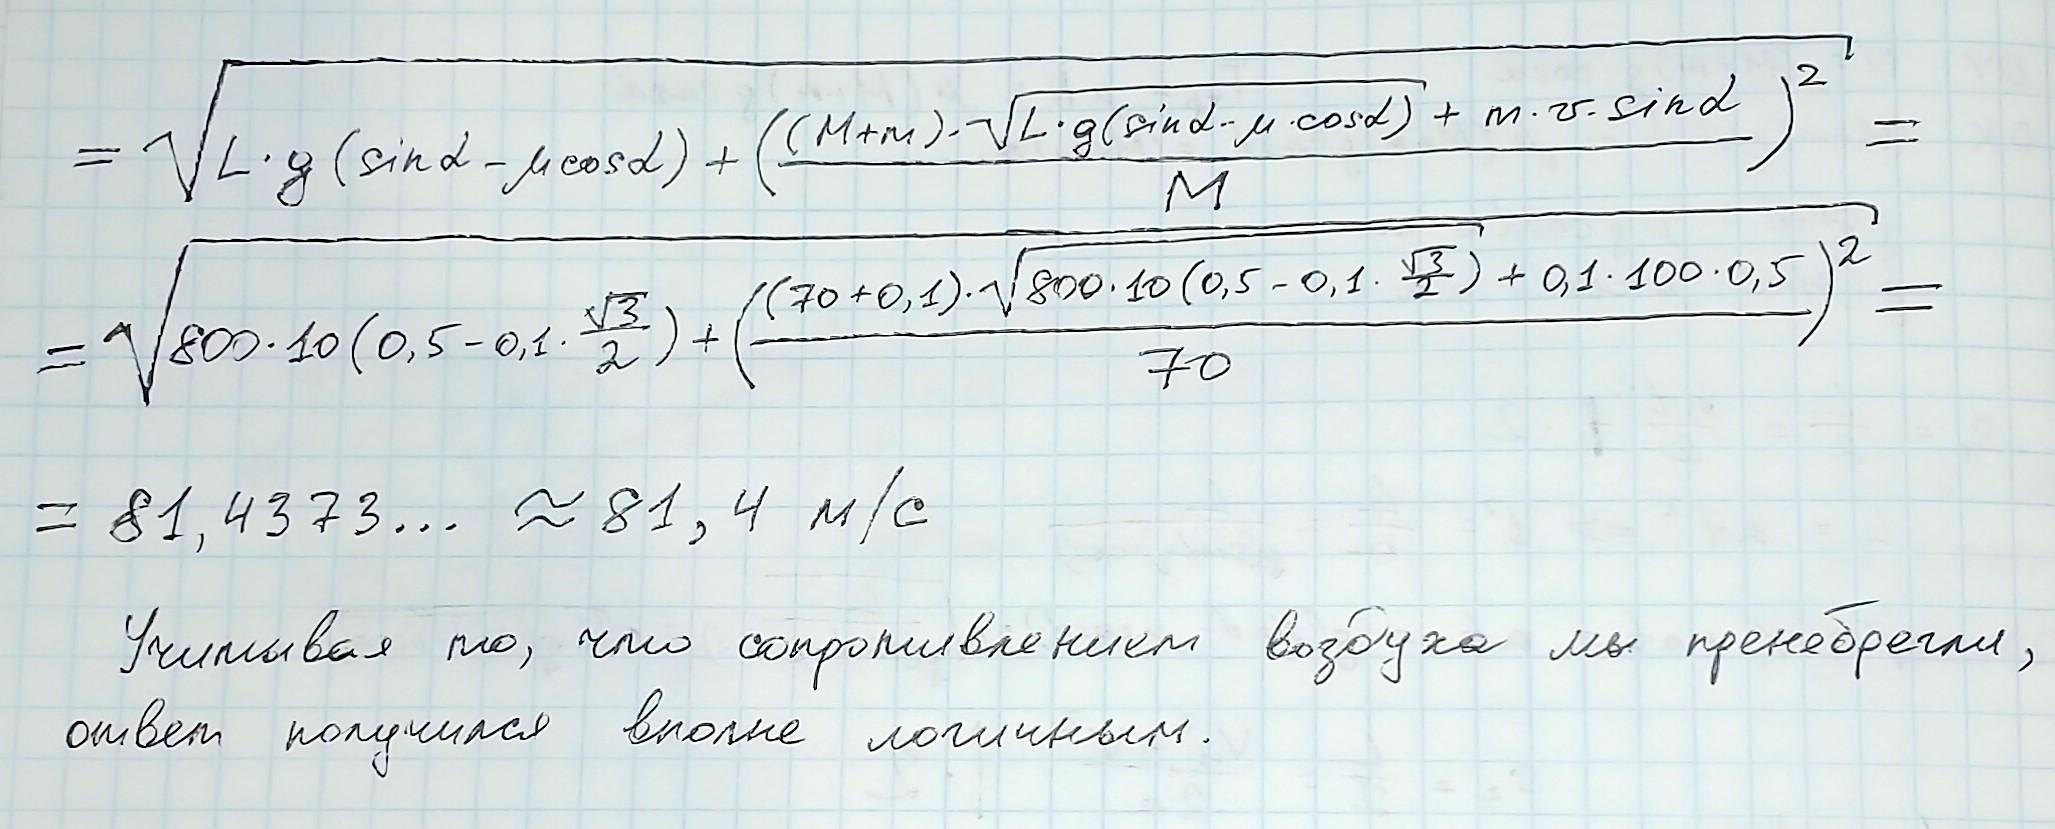 = √(L·g(sinα - μcosα) + (((M+m)·√(L·g(sinα - μ·cosα)) + m·v·sinα)/M)²) =
= √(800·10(0,5 - 0,1·√3/2) + (((70+0,1)·√(800·10(0,5 - 0,1·√3/2)) + 0,1·100·0,5)/70)²) =
= 81,4373... ≈ 81,4 м/с
Учитывая то, что сопротивлением воздуха мы пренебрегли,
ответ получился вполне логичным.